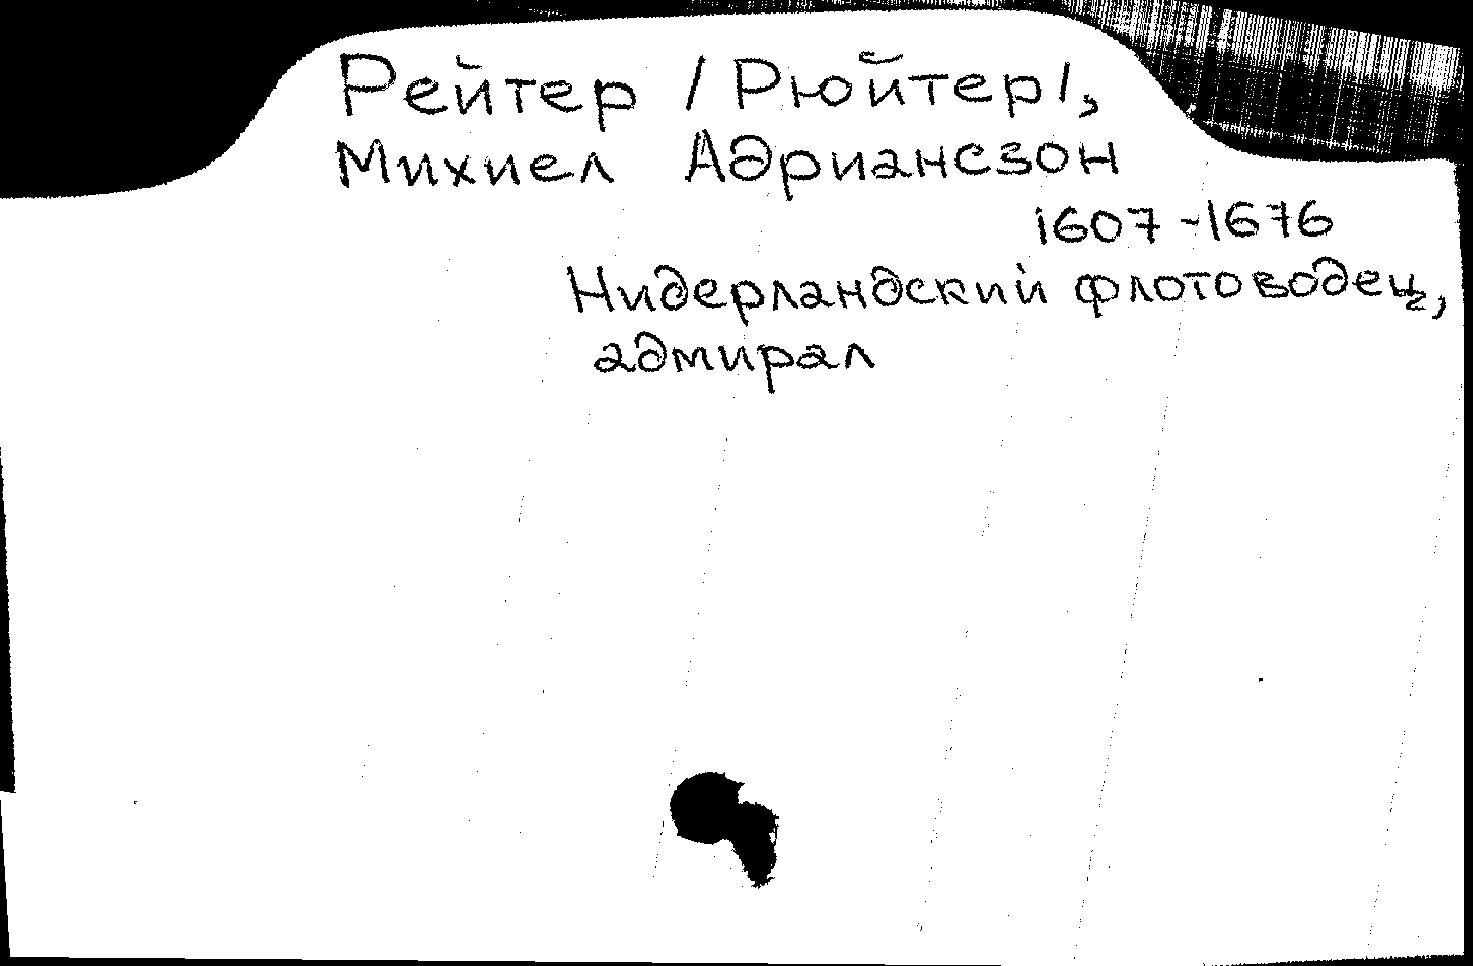 Рейтер /Рюйтер/,
Михиел Адриансзон
1607-1676
Нидерландский флотоводец,
адмирал